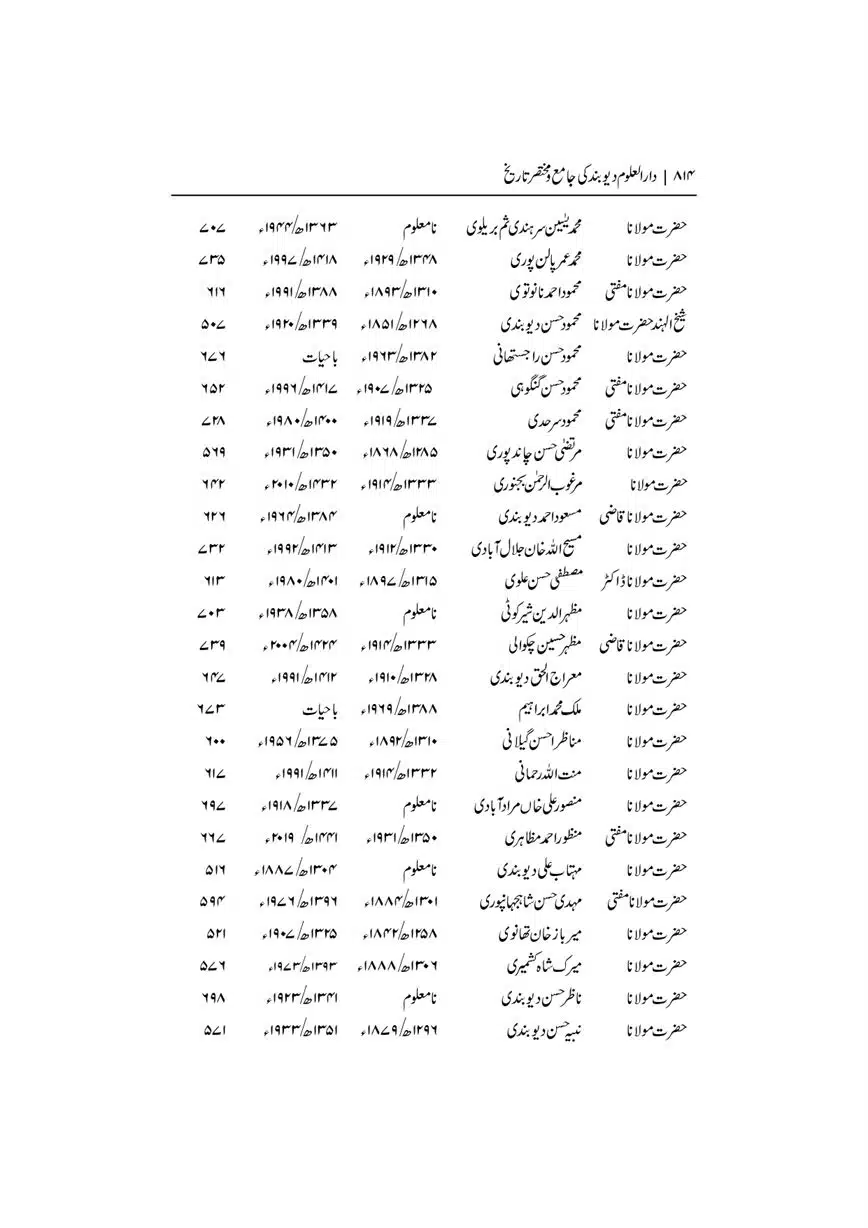 ۸۱۴ | دارالعلوم دیوبند کی جامع و مختصر تاریخ
حضرت مولانا محمد یٰسین سرہندی ثم بریلوی نامعلوم ۱۳۶۳ھ/۱۹۴۴ء ۷۰۷
حضرت مولانا محمد عمر پالن پوری ۱۳۴۸ھ/۱۹۲۹ء ۱۴۱۸ھ/۱۹۹۷ء ۷۳۵
حضرت مولانا مفتی محمود احمد نانوتوی ۱۳۱۰ھ/۱۸۹۳ء ۱۳۸۸ھ/۱۹۹۱ء ۶۱۶
شیخ الہند حضرت مولانا محمود حسن دیوبندی ۱۲۶۸ھ/۱۸۵۱ء ۱۳۳۹ھ/۱۹۲۰ء ۵۰۷
حضرت مولانا محمود حسن راجستھانی ۱۳۸۲ھ/۱۹۶۳ء باحیات ۶۷۶
حضرت مولانا مفتی محمود حسن گنگوہی ۱۳۲۵ھ/۱۹۰۷ء ۱۴۱۷ھ/۱۹۹۶ء ۶۵۲
حضرت مولانا مفتی محمود سرحدی ۱۳۳۷ھ/۱۹۱۹ء ۱۴۰۰ھ/۱۹۸۰ء ۷۲۸
حضرت مولانا مرتضیٰ حسن چاندپوری ۱۲۸۵ھ/۱۸۶۸ء ۱۳۵۰ھ/۱۹۳۱ء ۵۶۹
حضرت مولانا مرغوب الرحمٰن بجنوری ۱۳۳۳ھ/۱۹۱۴ء ۱۴۳۲ھ/۲۰۱۰ء ۶۴۲
حضرت مولانا قاضی مسعود احمد دیوبندی نامعلوم ۱۳۸۴ھ/۱۹۶۴ء ۶۲۶
حضرت مولانا مسیح اللہ خان جلال آبادی ۱۳۳۰ھ/۱۹۱۲ء ۱۴۱۳ھ/۱۹۹۲ء ۷۳۲
حضرت مولانا ڈاکٹر مصطفی حسن علوی ۱۳۱۵ھ/۱۸۹۷ء ۱۴۰۱ھ/۱۹۸۰ء ۶۱۳
حضرت مولانا مظہر الدین شیرکوٹی نامعلوم ۱۳۵۸ھ/۱۹۳۸ء ۷۰۳
حضرت مولانا قاضی مظہر حسین چکوالی ۱۳۳۳ھ/۱۹۱۴ء ۱۴۲۴ھ/۲۰۰۴ء ۷۳۹
حضرت مولانا معراج الحق دیوبندی ۱۳۲۸ھ/۱۹۱۰ء ۱۴۱۲ھ/۱۹۹۱ء ۶۴۷
حضرت مولانا ملک محمد ابراہیم ۱۳۸۸ھ/۱۹۶۹ء باحیات ۶۷۳
حضرت مولانا مناظر احسن گیلانی ۱۳۱۰ھ/۱۸۹۲ء ۱۳۷۵ھ/۱۹۵۶ء ۶۰۰
حضرت مولانا منت اللہ رحمانی ۱۳۳۲ھ/۱۹۱۴ء ۱۴۱۱ھ/۱۹۹۱ء ۶۱۷
حضرت مولانا منصور علی خاں مرادآبادی نامعلوم ۱۳۳۷ھ/۱۹۱۸ء ۶۹۷
حضرت مولانا مفتی منظور احمد مظاہری ۱۳۵۰ھ/۱۹۳۱ء ۱۴۴۱ھ/ ۲۰۱۹ء ۶۶۷
حضرت مولانا مہتاب علی دیوبندی نامعلوم ۱۳۰۴ھ/۱۸۸۷ء ۵۱۶
حضرت مولانا مفتی مہدی حسن شاہجہانپوری ۱۳۰۱ھ/۱۸۸۴ء ۱۳۹۶ھ/۱۹۷۶ء ۵۹۴
حضرت مولانا میر باز خان تھانوی ۱۲۵۸ھ/۱۸۴۲ء ۱۳۲۵ھ/۱۹۰۷ء ۵۲۱
حضرت مولانا میرک شاہ کشمیری ۱۳۰۶ھ/۱۸۸۸ء ۱۳۹۳ھ/۱۹۷۳ء ۵۷۶
حضرت مولانا ناظر حسن دیوبندی نامعلوم ۱۳۴۱ھ/۱۹۲۳ء ۶۹۸
حضرت مولانا نبیہ حسن دیوبندی ۱۲۹۶ھ/۱۸۷۹ء ۱۳۵۱ھ/۱۹۳۳ء ۵۷۱